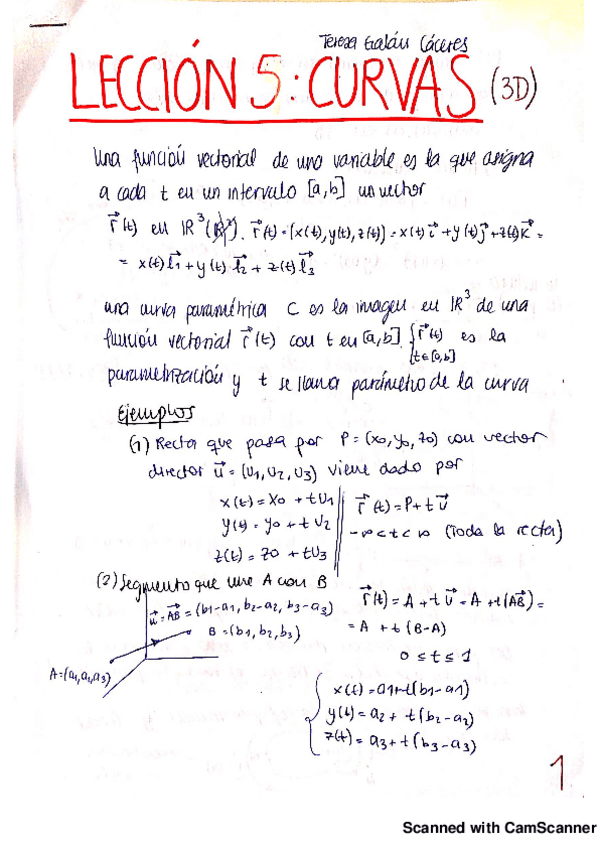 Teresa Galán Cáceres
LECCIÓN 5: CURVAS (3D)
Una función vectorial de una variable es la que asigna
a cada t en un intervalo [a,b] un vector
r⃗(t) en ℝ³(ℝ²). r⃗(t)=(x(t),y(t),z(t))=x(t)i⃗+y(t)j⃗+z(t)k⃗=
= x(t)l⃗₁+y(t)l⃗₂+z(t)l⃗₃
una curva paramétrica C es la imagen en ℝ³ de una
función vectorial r⃗(t) con t en [a,b]. { r⃗(t) t∈[a,b] es la
parametrización y t se llama parámetro de la curva
Ejemplos
(1) Recta que pasa por P=(x₀,y₀,z₀) con vector
director u⃗=(u₁,u₂,u₃) viene dado por
x(t)=x₀+tu₁
y(t)=y₀+tu₂
z(t)=z₀+tu₃
r⃗(t)=P+tu⃗
-∞<t<∞ (toda la recta)
(2) Segmento que une A con B
u⃗=AB⃗=(b₁-a₁,b₂-a₂,b₃-a₃)
B=(b₁,b₂,b₃)
A=(a₁,a₂,a₃)
r⃗(t)=A+tu⃗=A+t(AB⃗)=
=A+t(B-A)
0≤t≤1
x(t)=a₁+t(b₁-a₁)
y(t)=a₂+t(b₂-a₂)
z(t)=a₃+t(b₃-a₃)
1
Scanned with CamScanner